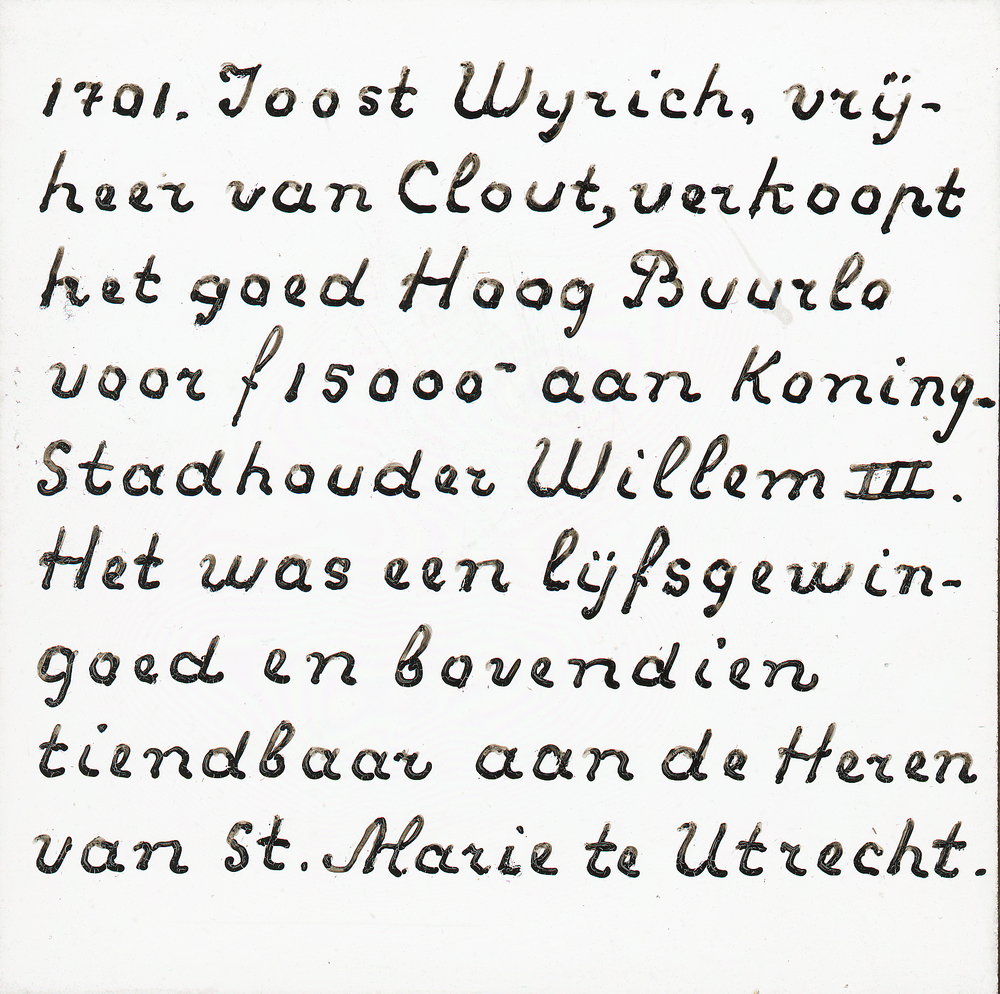 1701. Joost Wyrich, vrij-
heer van Clout, verkoopt
het goed Hoog Buurlo
voor f 15000- aan Koning-
Stadhouder Willem III.
Het was een lijfsgewin-
goed en bovendien
tiendbaar aan de Heren
van St. Marie te Utrecht.